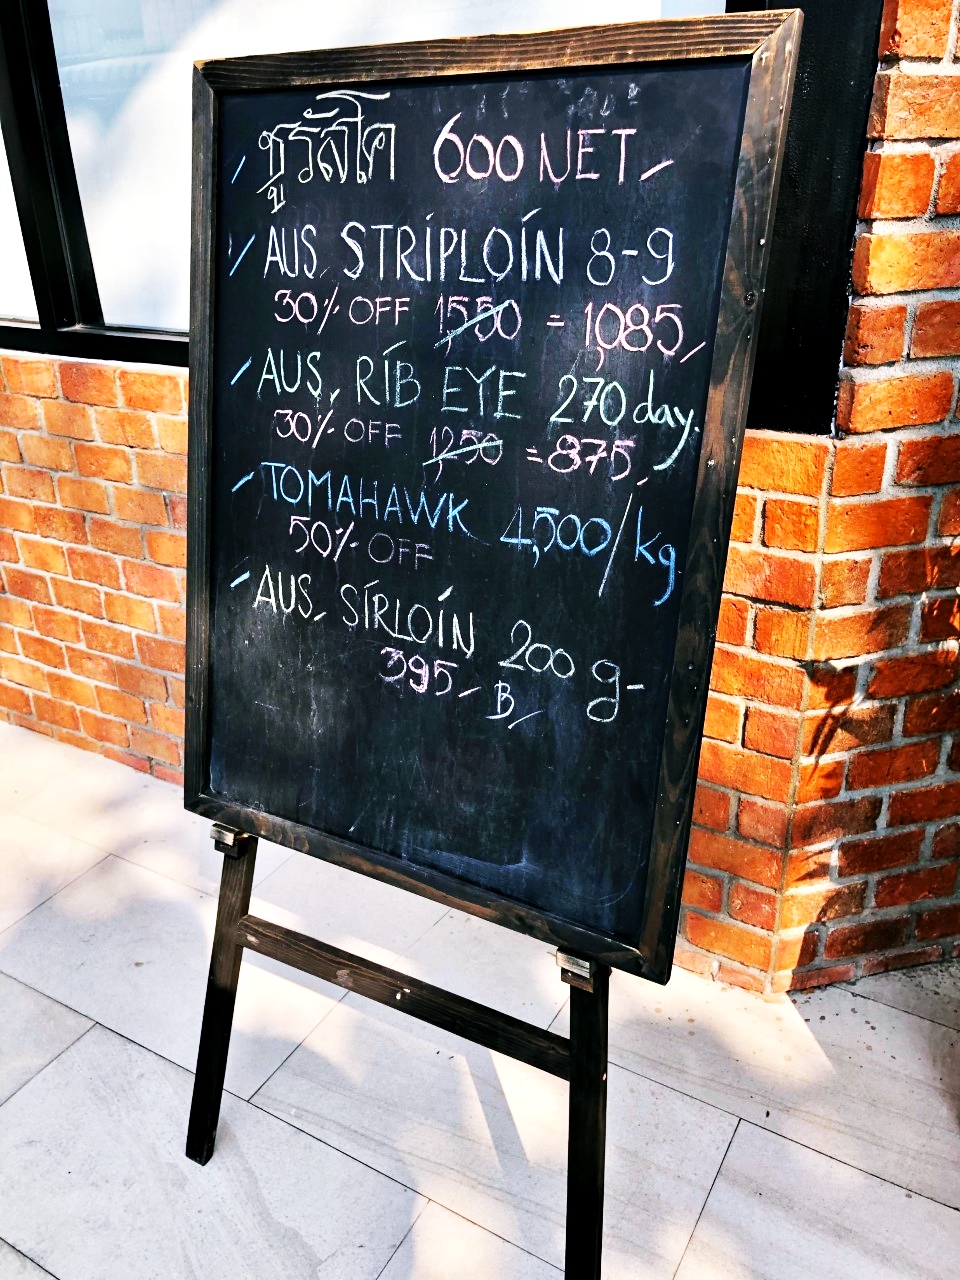 ชูรัสโค 600 NET.-
AUS. STRIPLOIN 8-9
30% OFF 1550 = 1,085.-
AUS. RIB EYE 270 day.
30% OFF 1,250 = 875.-
TOMAHAWK 4,500/kg
50% OFF
AUS. SIRLOIN 200 g-
395.- B.-